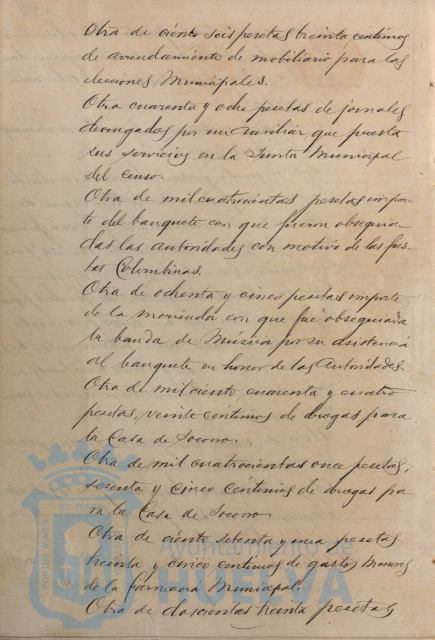 Otra de ciento seis pesetas treinta céntimos
de arrendamiento de mobiliario para las
elecciones Municipales.
Otra cuarenta y ocho pesetas de jornales
devengados por un auxiliar que presta
sus servicios en la Junta Municipal
del Censo.
Otra de mil cuatrocientas pesetas impor-
te del banquete con que fueron obsequia-
das las autoridades con motivo de las fies-
tas Colombinas.
Otra de ochenta y cinco pesetas importe
de la merienda con que fué obsequiada
la banda de Música por su asistencia
al banquete en honor de las Autoridades.
Otra de mil ciento cuarenta y cuatro
pesetas, veinte céntimos de drogas para
la Casa de Socorro.
Otra de mil cuatrocientas once pesetas,
sesenta y cinco céntimos de drogas pa
ra la Casa de Socorro.
Otra de ciento setenta y una pesetas
treinta y cinco céntimos de gastos menores
de la Farmacia Municipal.
Otra de doscientas treinta pesetas
Ayuntamiento de
HUELVA